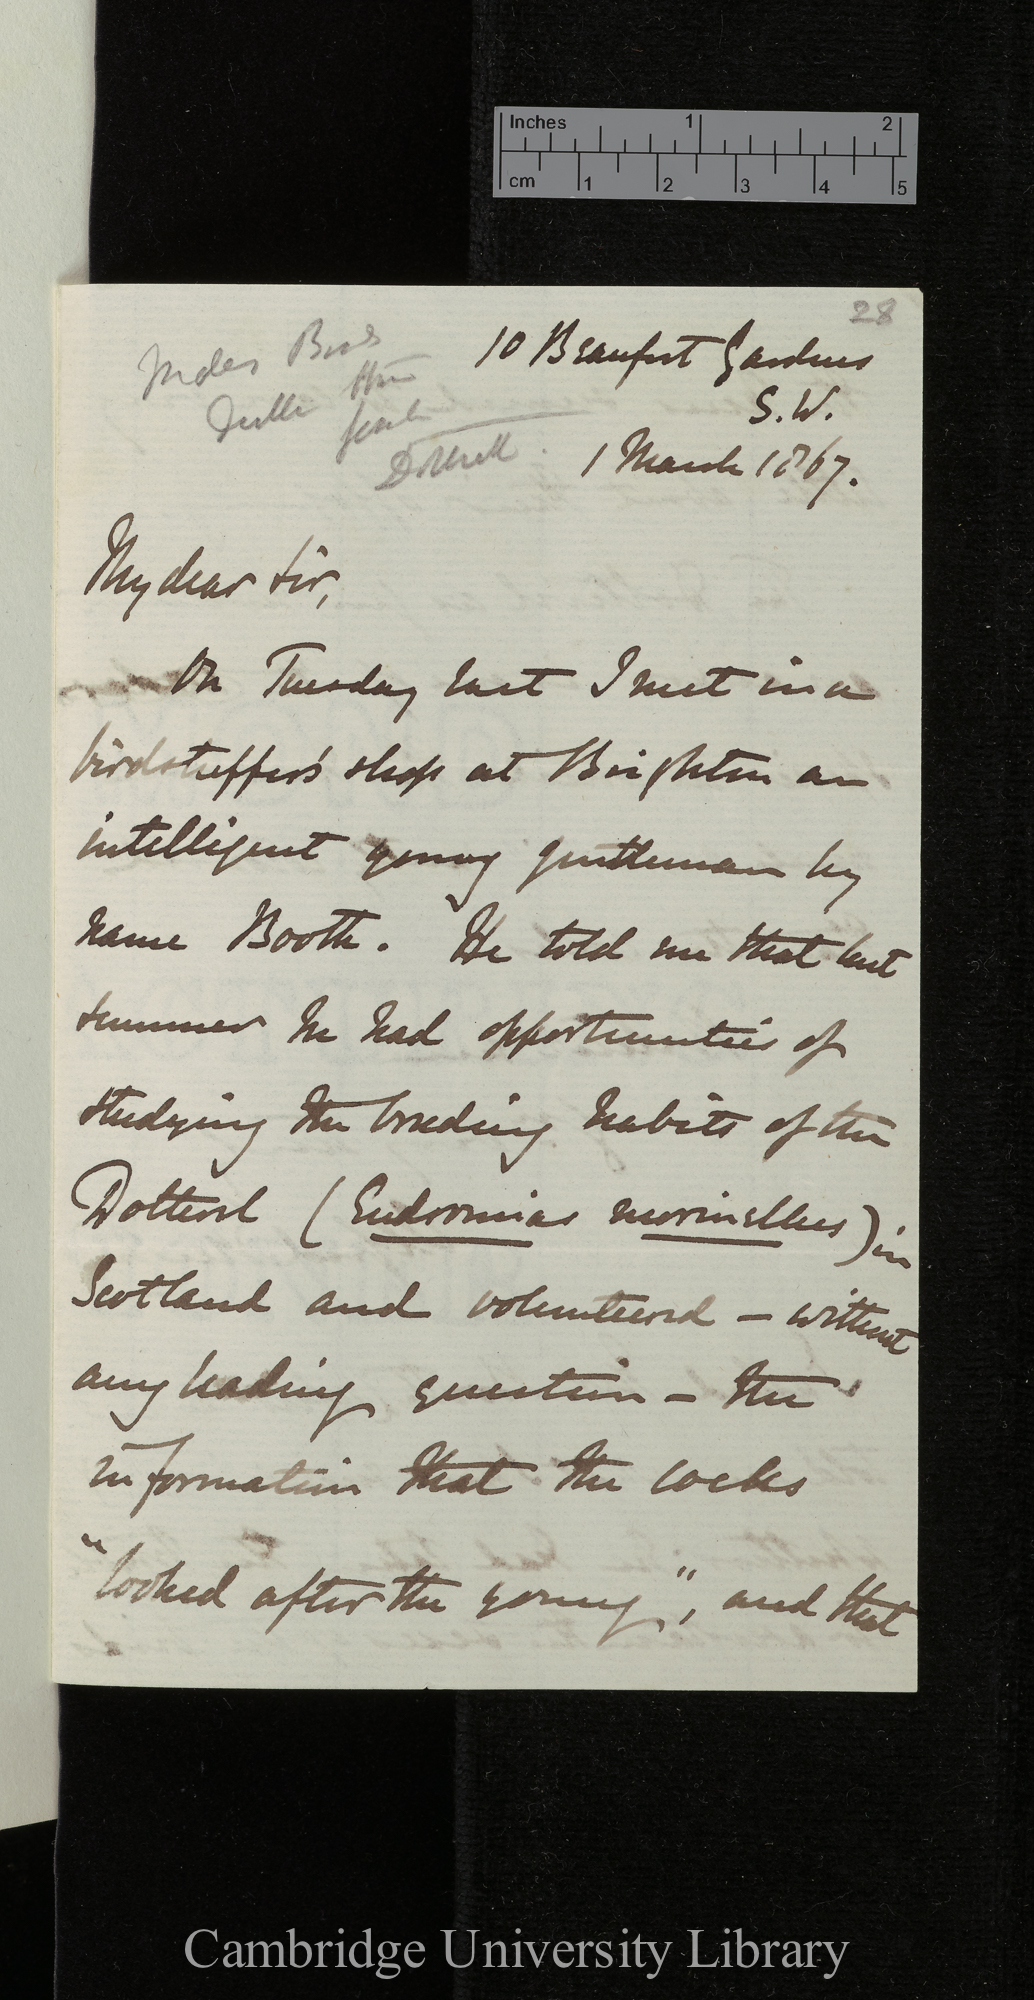 Inches 1 2
cm 1 2 3 4 5
28
Index Birds
Dotterell
10 Beaufort Gardens
S.W.
1 March 1867.
My dear Sir,
On Tuesday last I met in a
birdstuffer's shop at Brighton an
intelligent young gentleman by
name Booth. He told me that last
summer he had opportunities of
studying the breeding habits of the
Dotterel (Eudromias morinellus) in
Scotland and volunteered — without
any leading question — the
information that the cocks
"looked after the young", and that
Cambridge University Library